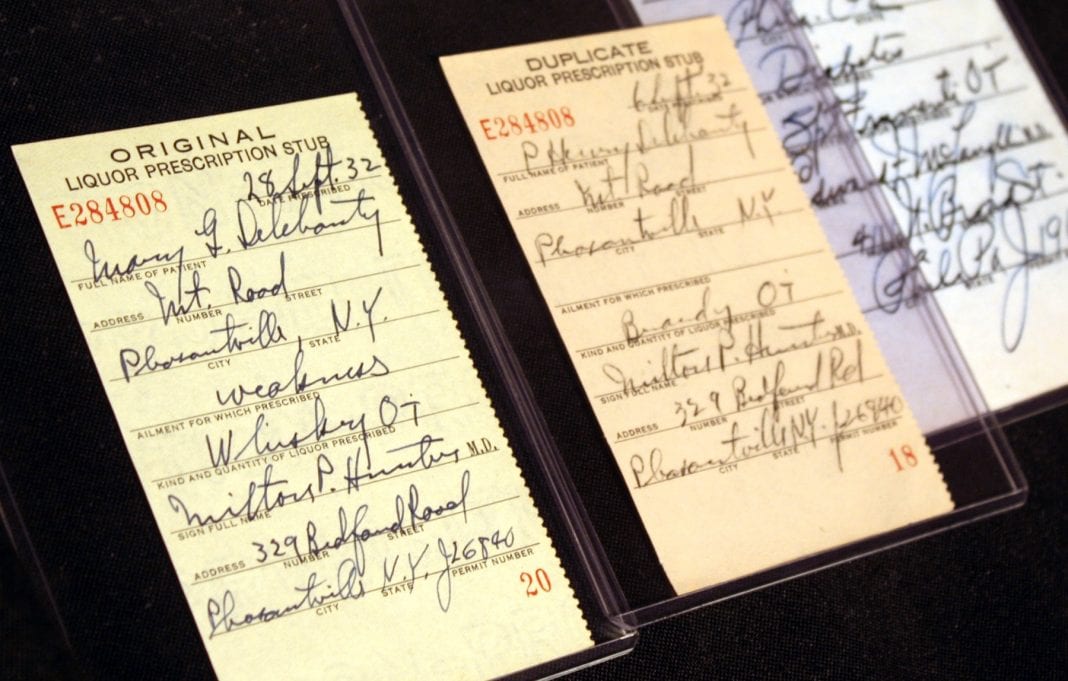 ORIGINAL
LIQUOR PRESCRIPTION STUB
E284808
28 Sept. 32
DATE PRESCRIBED
Mary G. Delehanty
FULL NAME OF PATIENT
Mt. Road
ADDRESS NUMBER STREET
Pleasantville, N.Y.
CITY STATE
weakness
AILMENT FOR WHICH PRESCRIBED
Whiskey OT
KIND AND QUANTITY OF LIQUOR PRESCRIBED
Milton P. Hunter M.D.
SIGN FULL NAME
329 Bedford Road
ADDRESS NUMBER STREET
Pleasantville N.Y. J26840
CITY STATE PERMIT NUMBER
20
DUPLICATE
LIQUOR PRESCRIPTION STUB
E284808
Sept 32
P Henry Delehanty
FULL NAME OF PATIENT
Mt Road
ADDRESS NUMBER STREET
Pleasantville N.Y
CITY STATE
AILMENT FOR WHICH PRESCRIBED
Brandy OT
KIND AND QUANTITY OF LIQUOR PRESCRIBED
Milton P. Hunter M.D.
SIGN FULL NAME
329 Bedford Rd
ADDRESS NUMBER STREET
Pleasantville NY. J26840
CITY STATE PERMIT NUMBER
18
Phila.
CITY STATE
Diabetes
OT
M.D.
Phila Pa J